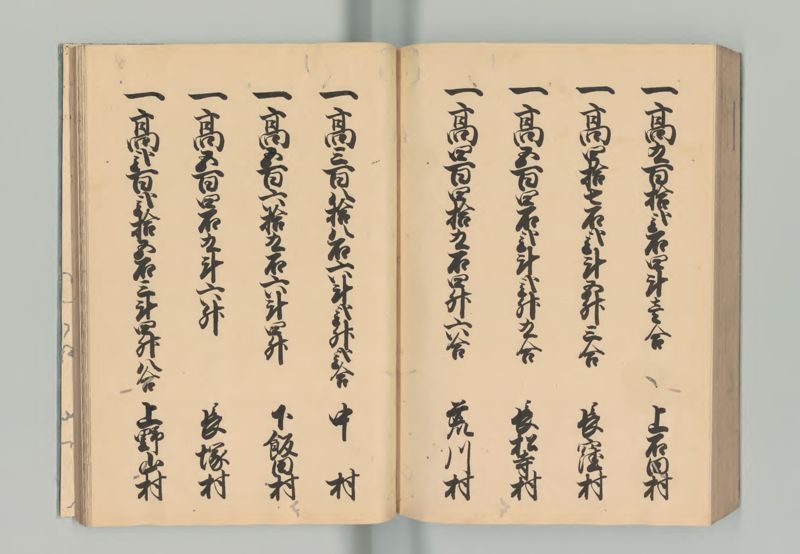 一高九百拾弐石四斗壱合 上石田村
一高四拾七石弐斗五升三合 長窪村
一高五百四石弐斗弐升九合 長松寺村
一高四百四拾九石四升六合 荒川村
一高三百八拾八石六斗弐升弐合 中村
一高五百六拾九石六斗四升 下飯田村
一高五百四石九斗六升 長塚村
一高弐百弐拾五石三斗四升八合 上野山村